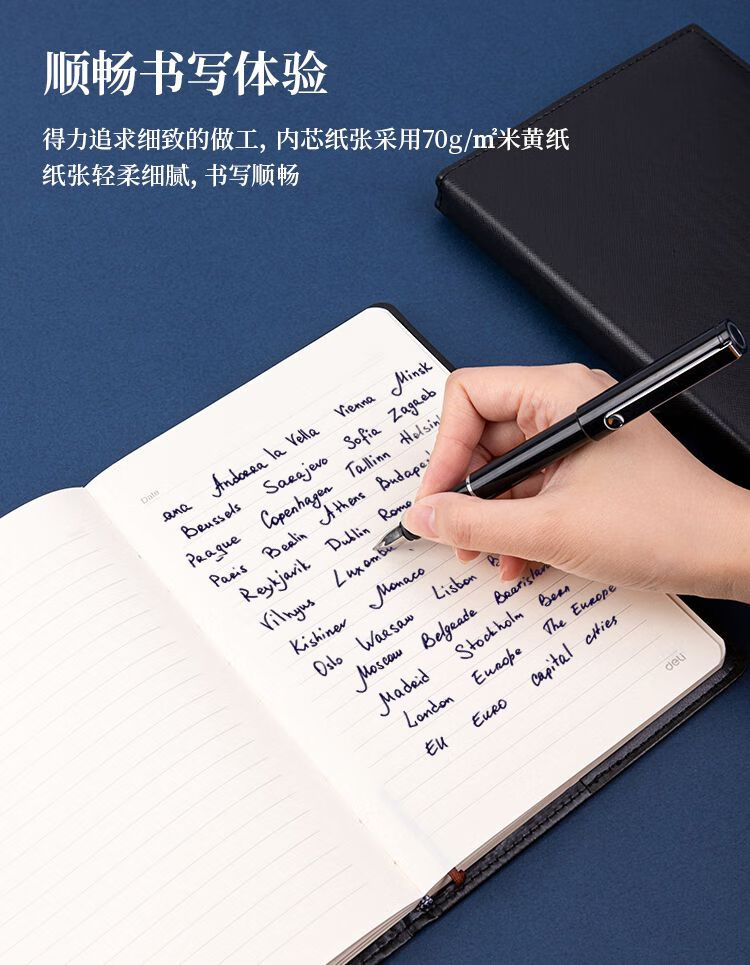 顺畅书写体验
得力追求细致的做工, 内芯纸张采用70g/㎡米黄纸
纸张轻柔细腻, 书写顺畅
Date
ana Andorra la Vella Vienna Minsk
Brussels Sarajevo Sofia Zagreb
Prague Copenhagen Tallinn Helsin
Paris Berlin Athens Budapest
Reykjavik Dublin Rome
Vilnyus Luxemb
Kishinev Monaco
Oslo Warsaw Lisbon
Moscow Belgrade Bratislav
Madrid Stockholm Bern
London Europe The Europe
EU Euro capital cities
deli